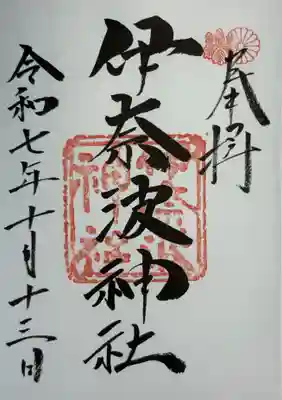 奉拝
伊奈波神社
令和七年十月十三日